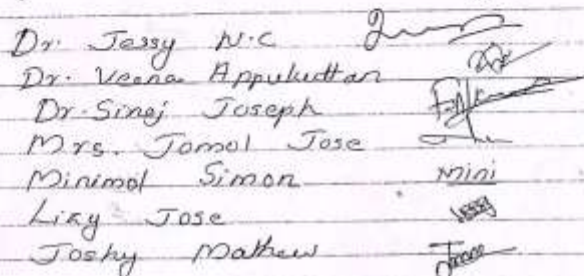 Dr. Jessy N.C
Dr. Veena Appukuttan
Dr. Sinoj Joseph
Mrs. Jomol Jose
Minimol Simon mini
Liky Jose
Joshy Mathew